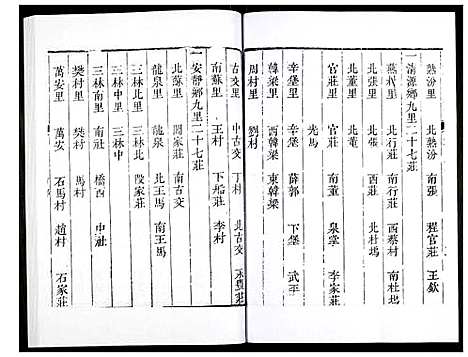 熱汾里 北熱汾 南張 程官莊 王欽
一清源鄉九里二十七莊
燕村里 北行莊 南行莊 西蔡村 南杜塢
北張里 北張 西莊 北杜塢
北董里 北董
官莊里 官莊 南董 泉掌 李家莊
光馬
辛堡里 辛堡 薛郭 下堡 武平
韓梁里 西韓梁 東韓梁
周村里 劉村
古交里 中古交 丁村 北古交 永豐莊
南蘇里 王村 下船莊 李村
一安靜鄉九里二十七莊
北蘇里 閻家莊 南古交
龍泉里 龍泉 北王馬 南王馬
三林北里 三林北 段家莊
三林中里 三林中
三林南里 南社 橋西 中社
樊村里 樊村 馬村
萬安里 萬安 石馬村 趙村 石家莊